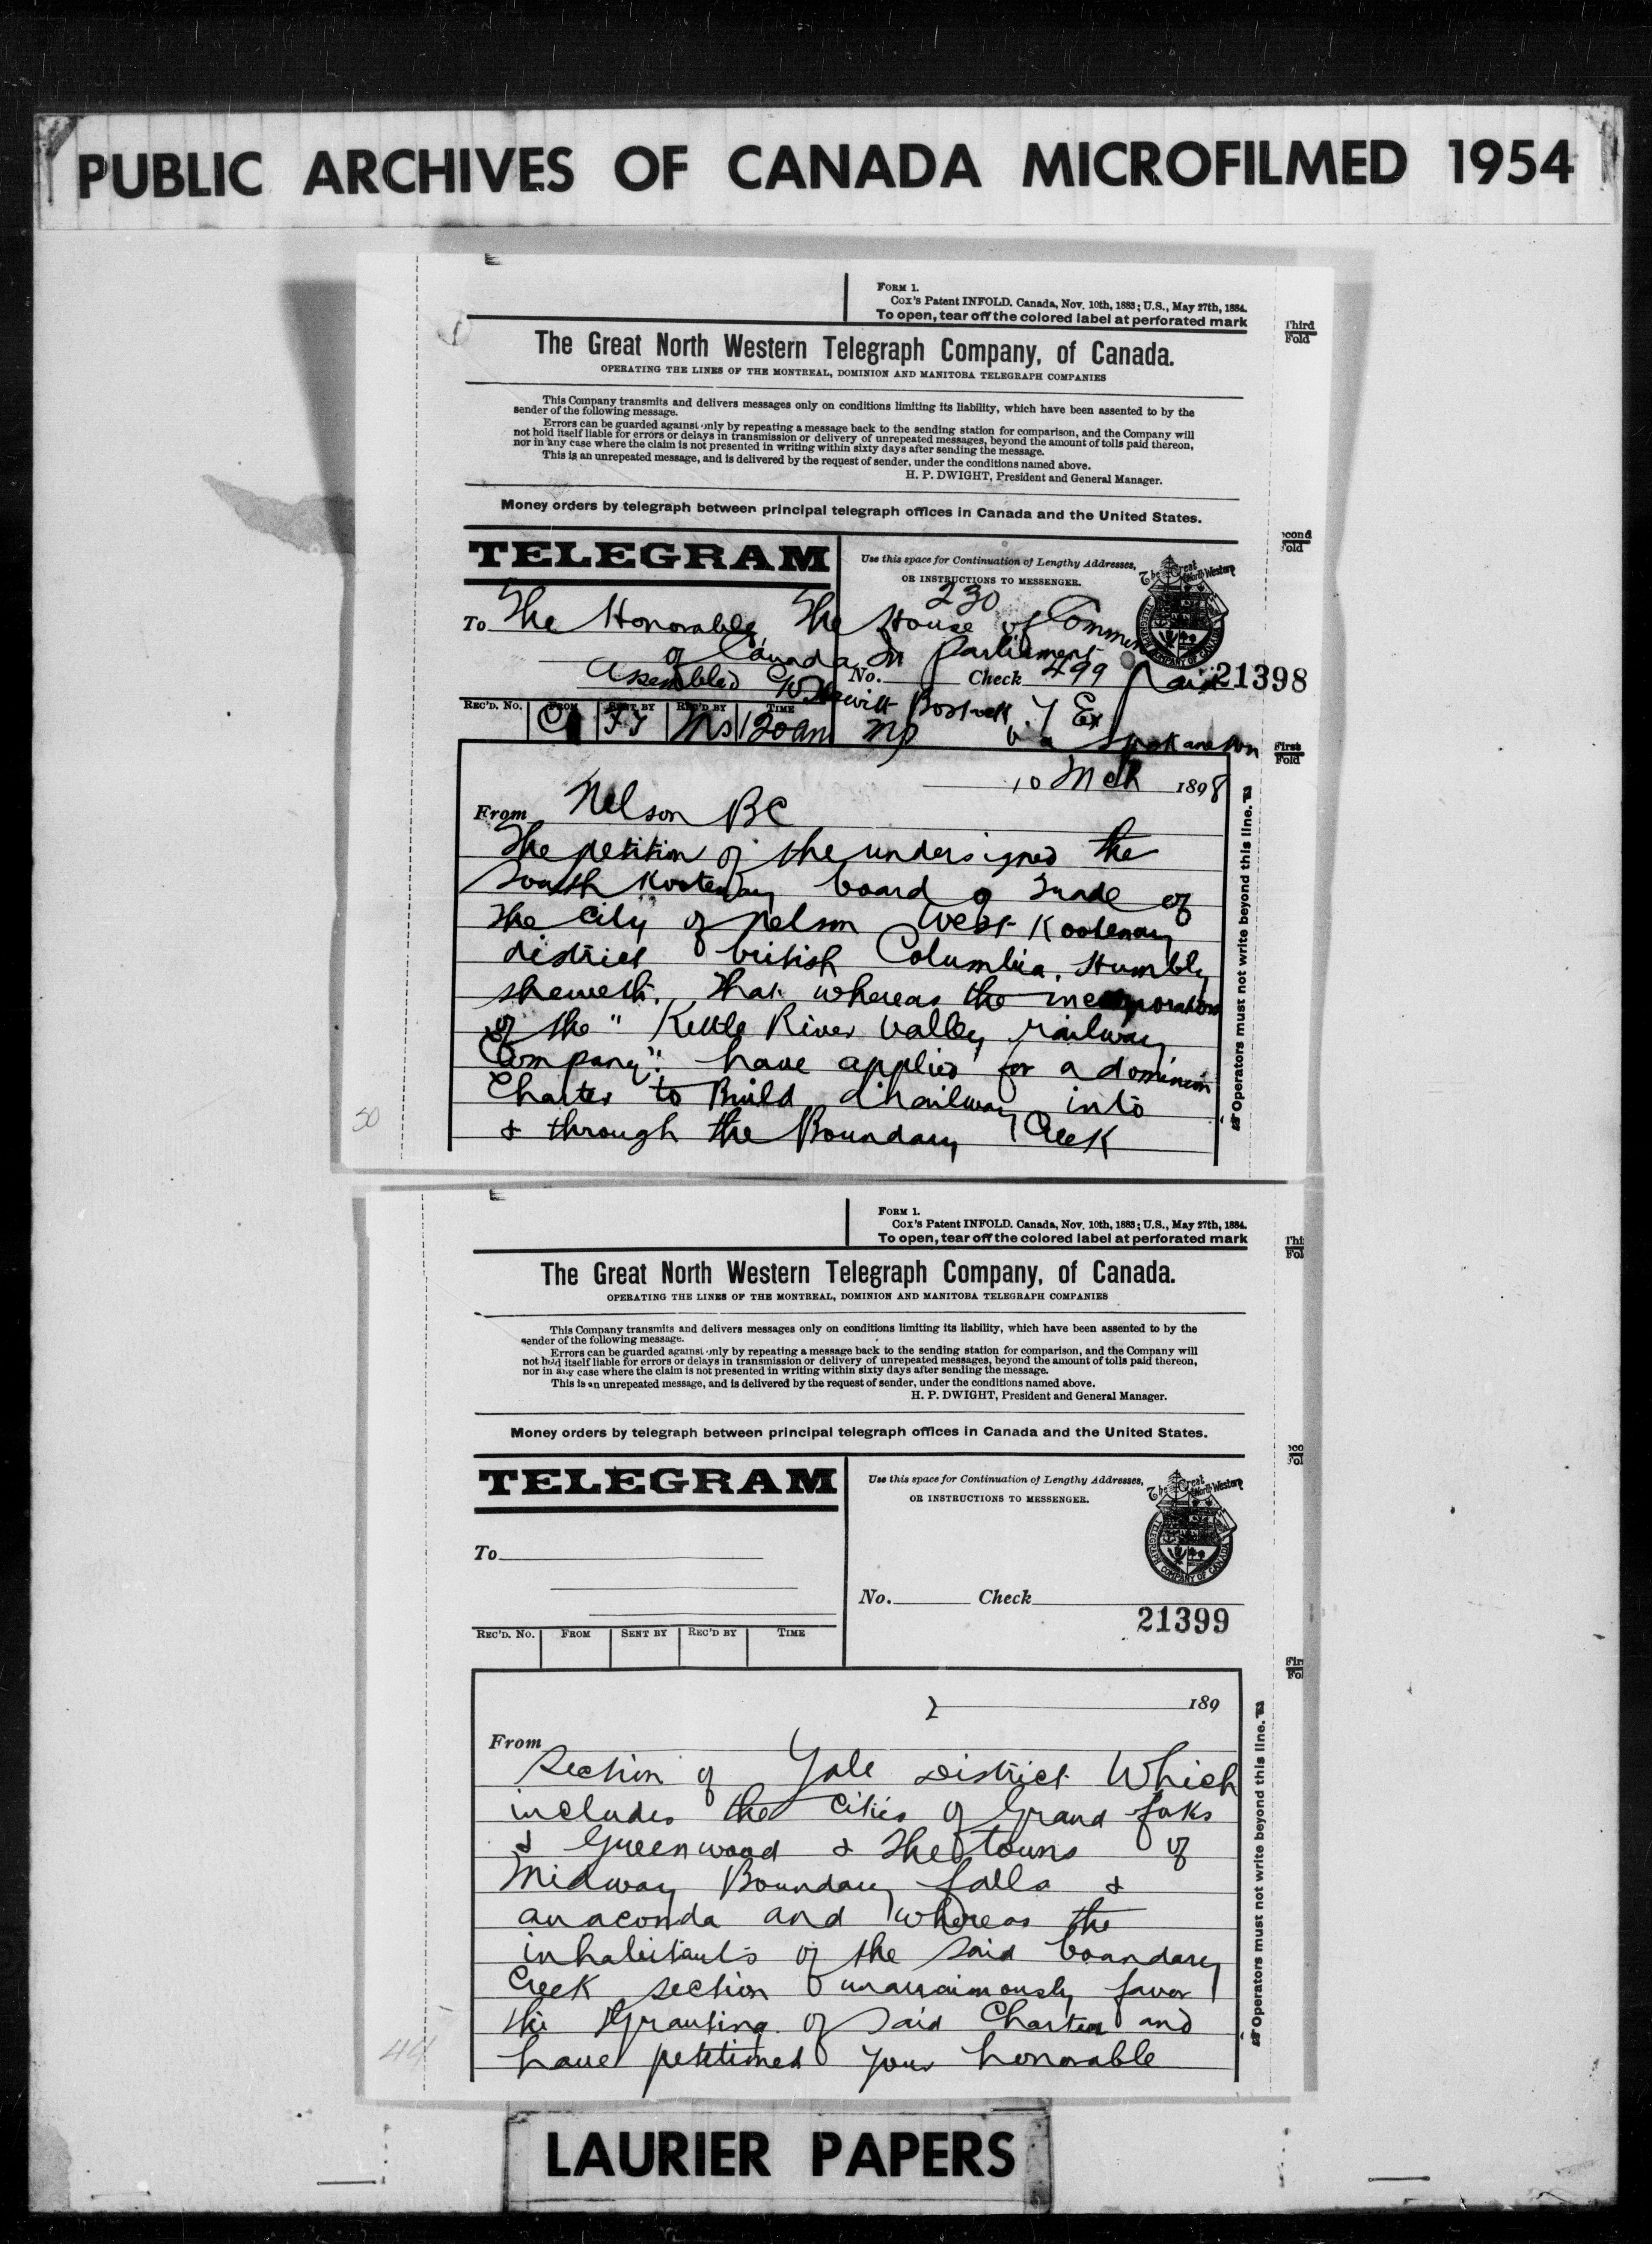 PUBLIC ARCHIVES OF CANADA MICROFILMED 1954
FORM 1.
Cox's Patent INFOLD. Canada, Nov. 10th, 1883; U.S., May 27th, 1884.
To open, tear off the colored label at perforated mark
Third
Fold
The Great North Western Telegraph Company, of Canada.
OPERATING THE LINES OF THE MONTREAL, DOMINION AND MANITOBA TELEGRAPH COMPANIES
This Company transmits and delivers messages only on conditions limiting its liability, which have been assented to by the
sender of the following message.
Errors can be guarded against only by repeating a message back to the sending station for comparison, and the Company will
not hold itself liable for errors or delays in transmission or delivery of unrepeated messages, beyond the amount of tolls paid thereon,
nor in any case where the claim is not presented in writing within sixty days after sending the message.
This is an unrepeated message, and is delivered by the request of sender, under the conditions named above.
H. P. DWIGHT, President and General Manager.
Money orders by telegraph between principal telegraph offices in Canada and the United States.
TELEGRAM
Use this space for Continuation of Lengthy Addresses,
OR INSTRUCTIONS TO MESSENGER.
The Great North Western
TELEGRAPH COMPANY OF CANADA
230
To The Honorable The House of Commons
of Canada in Parliament
Assembled No. Check 499 Paid 21398
Hewitt Bostock
REC'D. NO. FROM SENT BY REC'D BY TIME
120am MP Spokane Wn
First
Fold
10 Mch 1898
From Nelson BC
The petition of the undersigned the
South Kootenay board of Trade of
the City of Nelson West Kootenay
district british Columbia. Humbly
sheweth. That whereas the incorporators
of the "Kettle River Valley railway
Company". have applied for a dominion
Charter to Build a railway into
& through the Boundary Creek
Operators must not write beyond this line.
50
FORM 1.
Cox's Patent INFOLD. Canada, Nov. 10th, 1883; U.S., May 27th, 1884.
To open, tear off the colored label at perforated mark
The Great North Western Telegraph Company, of Canada.
OPERATING THE LINES OF THE MONTREAL, DOMINION AND MANITOBA TELEGRAPH COMPANIES
This Company transmits and delivers messages only on conditions limiting its liability, which have been assented to by the
sender of the following message.
Errors can be guarded against only by repeating a message back to the sending station for comparison, and the Company will
not hold itself liable for errors or delays in transmission or delivery of unrepeated messages, beyond the amount of tolls paid thereon,
nor in any case where the claim is not presented in writing within sixty days after sending the message.
This is an unrepeated message, and is delivered by the request of sender, under the conditions named above.
H. P. DWIGHT, President and General Manager.
Money orders by telegraph between principal telegraph offices in Canada and the United States.
TELEGRAM
Use this space for Continuation of Lengthy Addresses,
OR INSTRUCTIONS TO MESSENGER.
The Great North Western
TELEGRAPH COMPANY OF CANADA
To
No. Check
21399
REC'D. NO. FROM SENT BY REC'D BY TIME
2 189
From
Section of Yale District Which
includes the Cities of Grand forks
& Greenwood & The towns of
Midway Boundary falls &
anaconda and whereas the
inhabitants of the said boundary
Creek section unanimously favor
the Granting of said Charter and
have petitioned your honorable
Operators must not write beyond this line.
44
LAURIER PAPERS